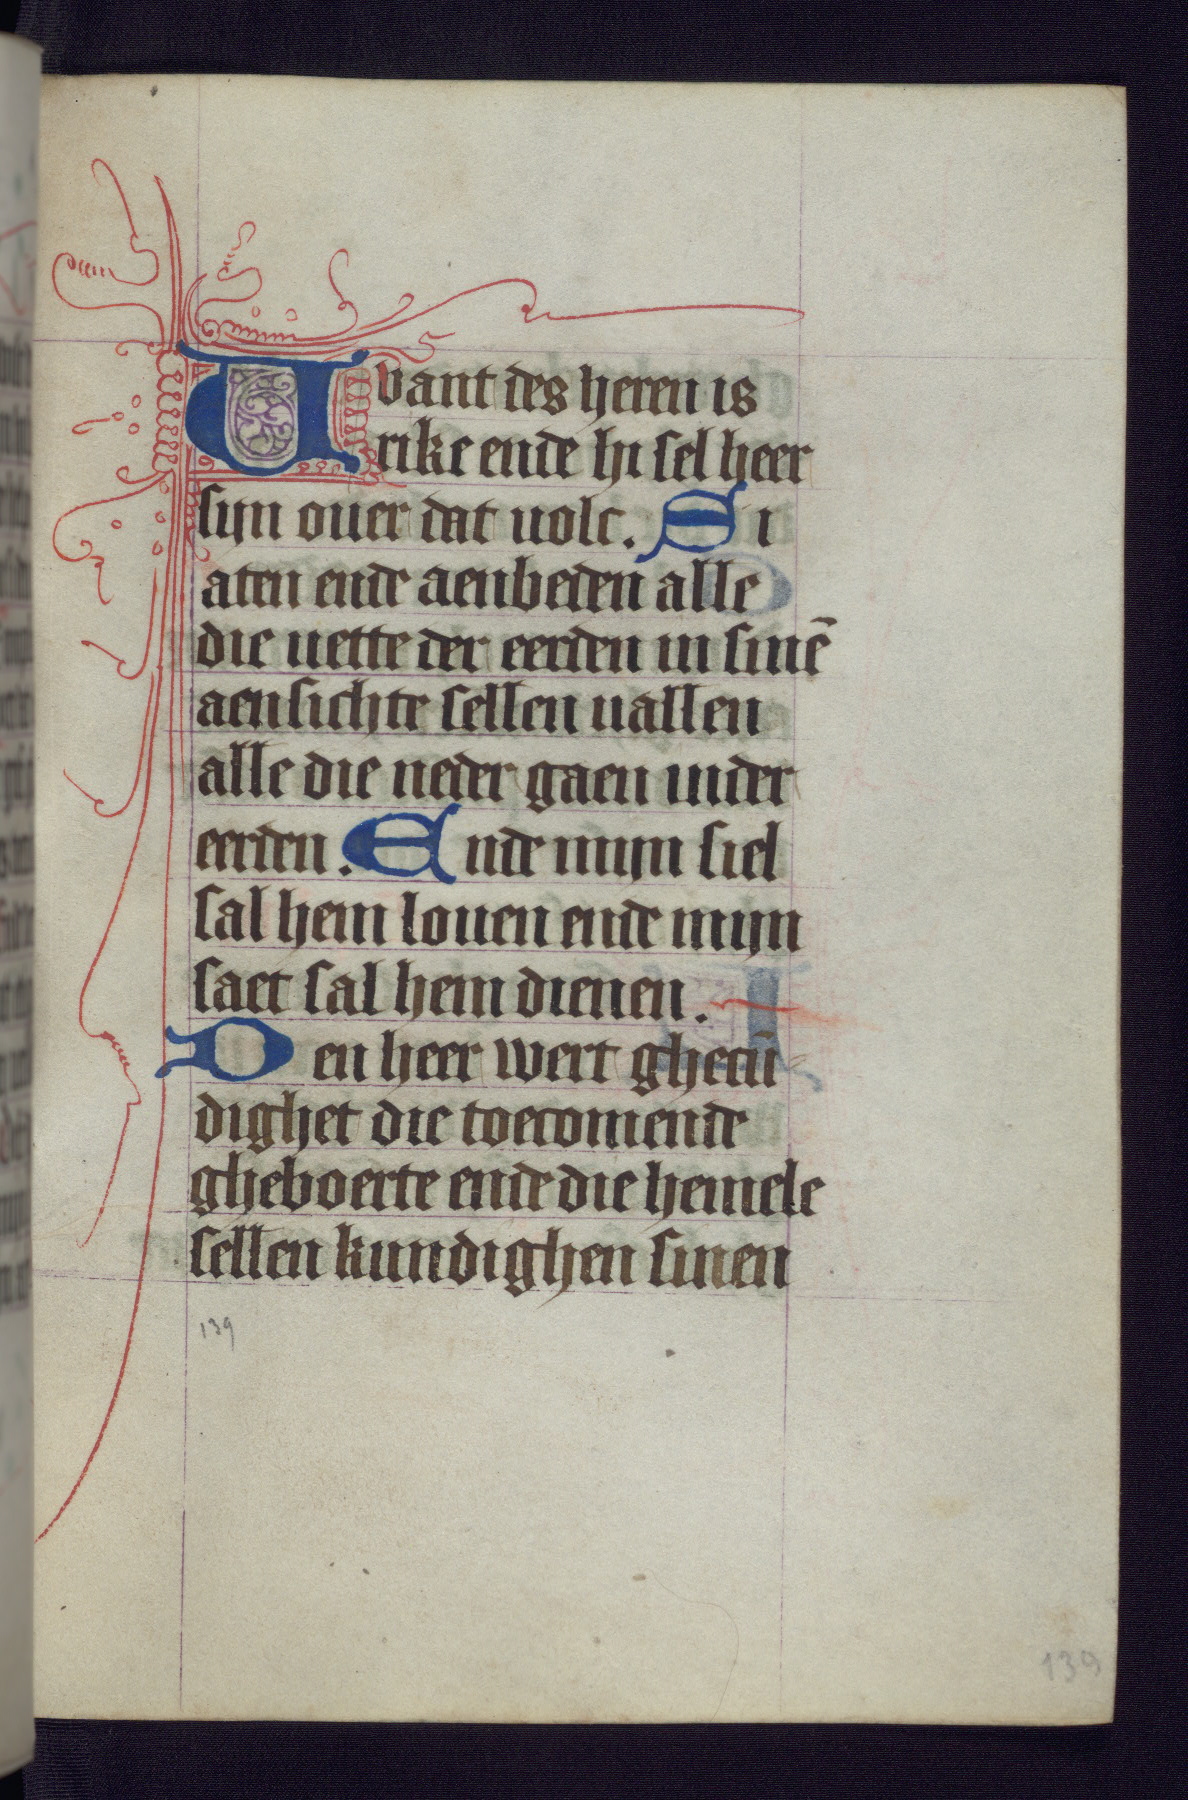 Uvant des heren is
rike ende hi sel heer
sijn ouer dat uolc. Si
aten ende aenbeden alle
die uette der eerden in sinē
aensichte sellen uallen
alle die neder gaen inder
eerden. Ende mijn siel
sal hem louen ende mijn
saet sal hem dienen.
Den heer wert ghecū
dighet die toecomende
gheboerte ende die hemele
sellen kundighen sinen
139
139